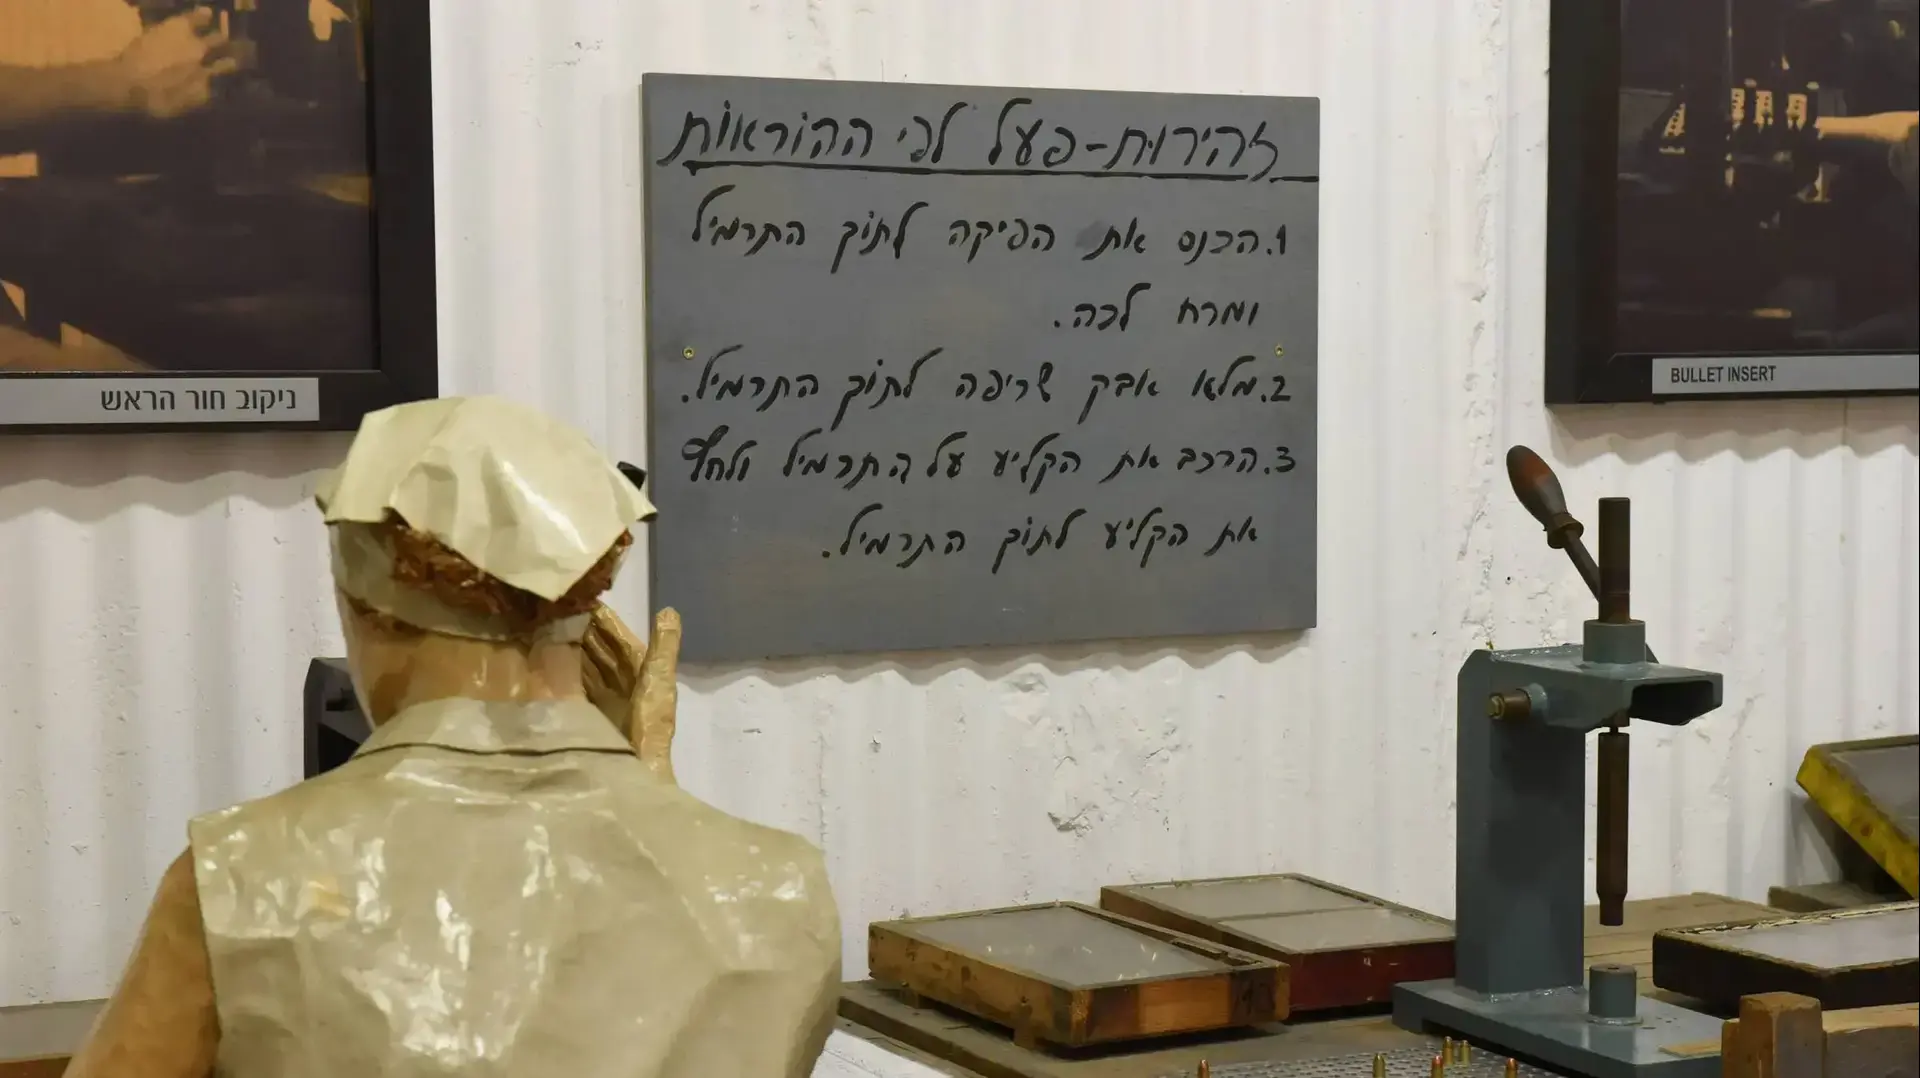 זהירות-פעל לפי ההוראות
1. הכנס את הפיקה לתוך התרמיל
ומרח לכה.
2. מלא אבק שריפה לתוך התרמיל.
3. הרכב את הקליע על התרמיל ולחץ
את הקליע לתוך התרמיל.
ניקוב חור הראש
BULLET INSERT